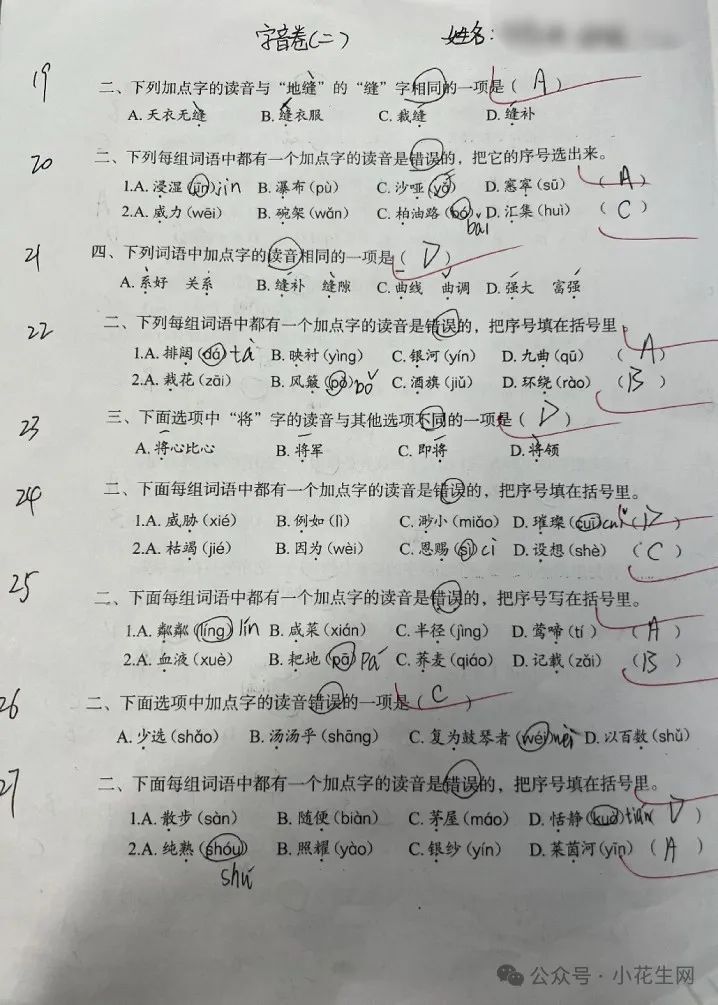 字音卷(二) 姓名:
19 二、下列加点字的读音与“地缝”的“缝”字相同的一项是( A )
A. 天衣无缝 B. 缝衣服 C. 裁缝 D. 缝补
20 二、下列每组词语中都有一个加点字的读音是错误的，把它的序号选出来。
1.A. 浸湿(jīn) jìn B. 瀑布(pù) C. 沙哑(yǎ) D. 窸窣(sū) ( A )
2.A. 威力(wēi) B. 碗架(wǎn) C. 柏油路(bó) bǎi D. 汇集(huì) ( C )
21 四、下列词语中加点字的读音相同的一项是( D )
A. 系好 关系 B. 缝补 缝隙 C. 曲线 曲调 D. 强大 富强
22 二、下列每组词语中都有一个加点字的读音是错误的，把序号填在括号里。
1.A. 排闼(dá) tà B. 映衬(yìng) C. 银河(yín) D. 九曲(qū) ( A )
2.A. 栽花(zāi) B. 风簸 bǒ C. 酒旗(jiǔ) D. 环绕(rào) ( B )
23 三、下面选项中“将”字的读音与其他选项不同的一项是( D )
A. 将心比心 B. 将军 C. 即将 D. 将领
24 二、下面每组词语中都有一个加点字的读音是错误的，把序号填在括号里。
1.A. 威胁(xié) B. 例如(lì) C. 渺小(miǎo) D. 璀璨(cuī) cuǐ ( D )
2.A. 枯竭(jié) B. 因为(wèi) C. 恩赐(sì) cì D. 设想(shè) ( C )
25 二、下面每组词语中都有一个加点字的读音是错误的，把序号写在括号里。
1.A. 粼粼(líng) lín B. 咸菜(xián) C. 半径(jìng) D. 莺啼(tí ) ( A )
2.A. 血液(xuè) B. 耙地(pā) pá C. 荞麦(qiáo) D. 记载(zǎi) ( B )
26 二、下面选项中加点字的读音错误的一项是( C )
A. 少选(shǎo) B. 汤汤乎(shāng) C. 复为鼓琴者(wéi) wèi D. 以百数(shǔ)
27 二、下面每组词语中都有一个加点字的读音是错误的，把序号填在括号里。
1.A. 散步(sàn) B. 随便(biàn) C. 茅屋(máo) D. 恬静(kuò) tián ( D )
2.A. 纯熟(shóu) shú B. 照耀(yào) C. 银纱(yín) D. 莱茵河(yīn) ( A )
公众号·小花生网